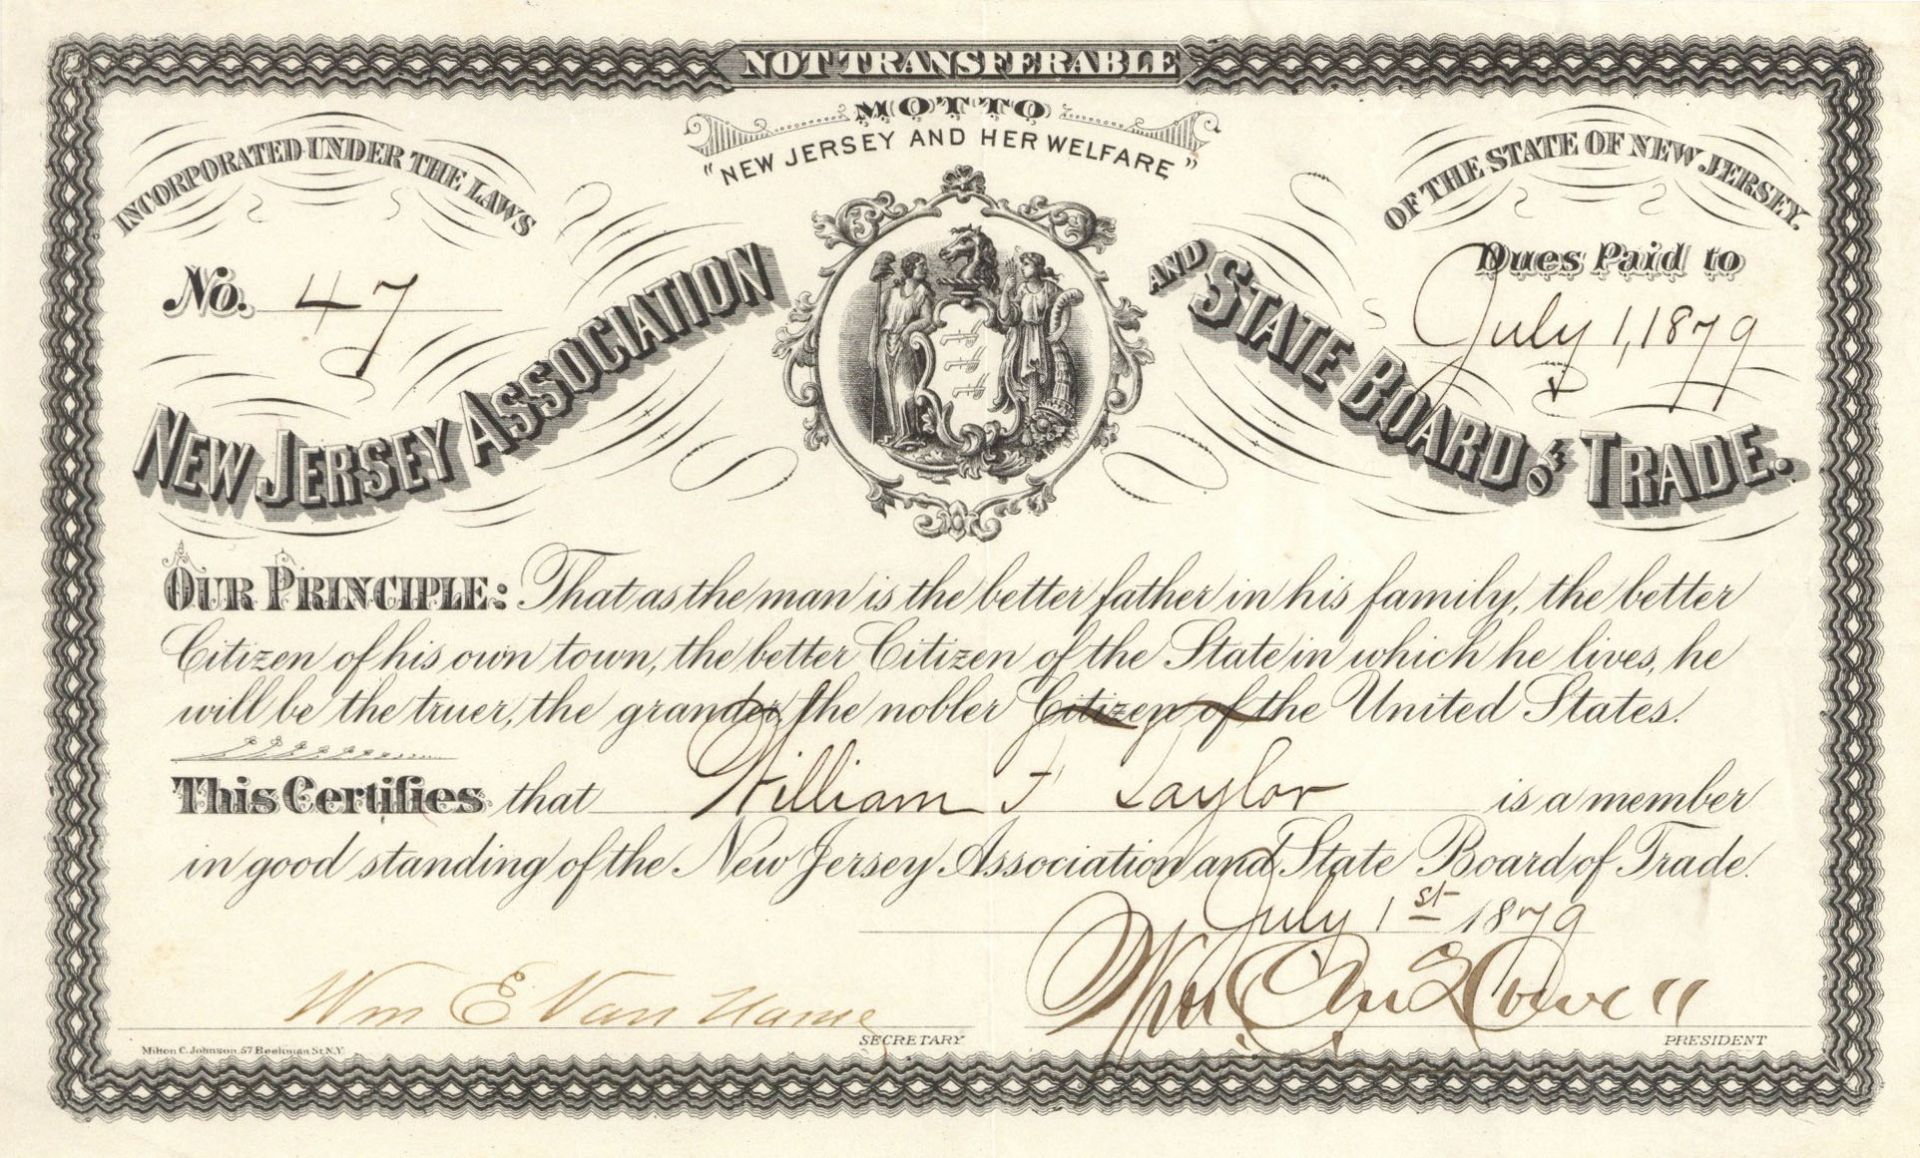 NOT TRANSFERABLE
MOTTO
"NEW JERSEY AND HER WELFARE"
INCORPORATED UNDER THE LAWS
OF THE STATE OF NEW JERSEY.
No. 47
Dues Paid to
July 1, 1879
NEW JERSEY ASSOCIATION
AND STATE BOARD OF TRADE.
OUR PRINCIPLE: That as the man is the better father in his family, the better
Citizen of his own town, the better Citizen of the State in which he lives, he
will be the truer, the grander, the nobler Citizen of the United States.
This Certifies that William F Taylor is a member
in good standing of the New Jersey Association and State Board of Trade.
July 1st 1879
Wm E Van Name
SECRETARY
PRESIDENT
Milton C. Johnson, 57 Beekman St. N.Y.